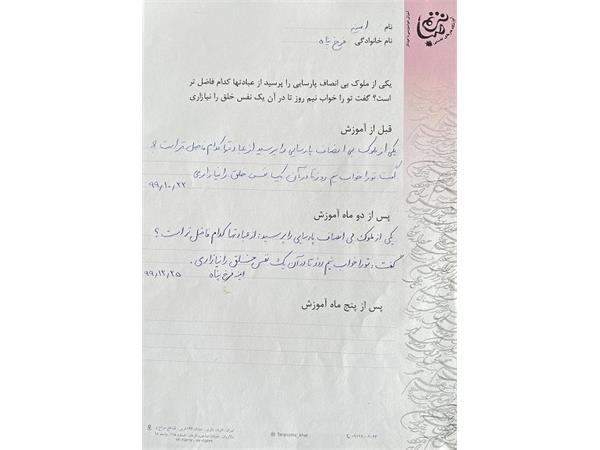 نام امینه
نام خانوادگی فرخ پناه
یکی از ملوک بی انصاف پارسایی را پرسید از عبادتها کدام فاضل تر
است؟ گفت تو را خواب نیم روز تا در آن یک نفس خلق را نیازاری
قبل از آموزش
یکی از ملوک بی انصاف پارسایی را پرسید از عبادتها کدام فاضل تر است
گفت تو را خواب نیم روز تا در آن یک نفس خلق را نیازاری
۹۹,۱۰,۲۲
پس از دو ماه آموزش
یکی از ملوک بی انصاف پارسایی را پرسید: از عبادتها کدام فاضل تر است؟
گفت: تو را خواب نیم روز تا در آن یک نفس خلق را نیازاری.
فرخ پناه
۹۹,۱۲,۲۵
پس از پنج ماه آموزش